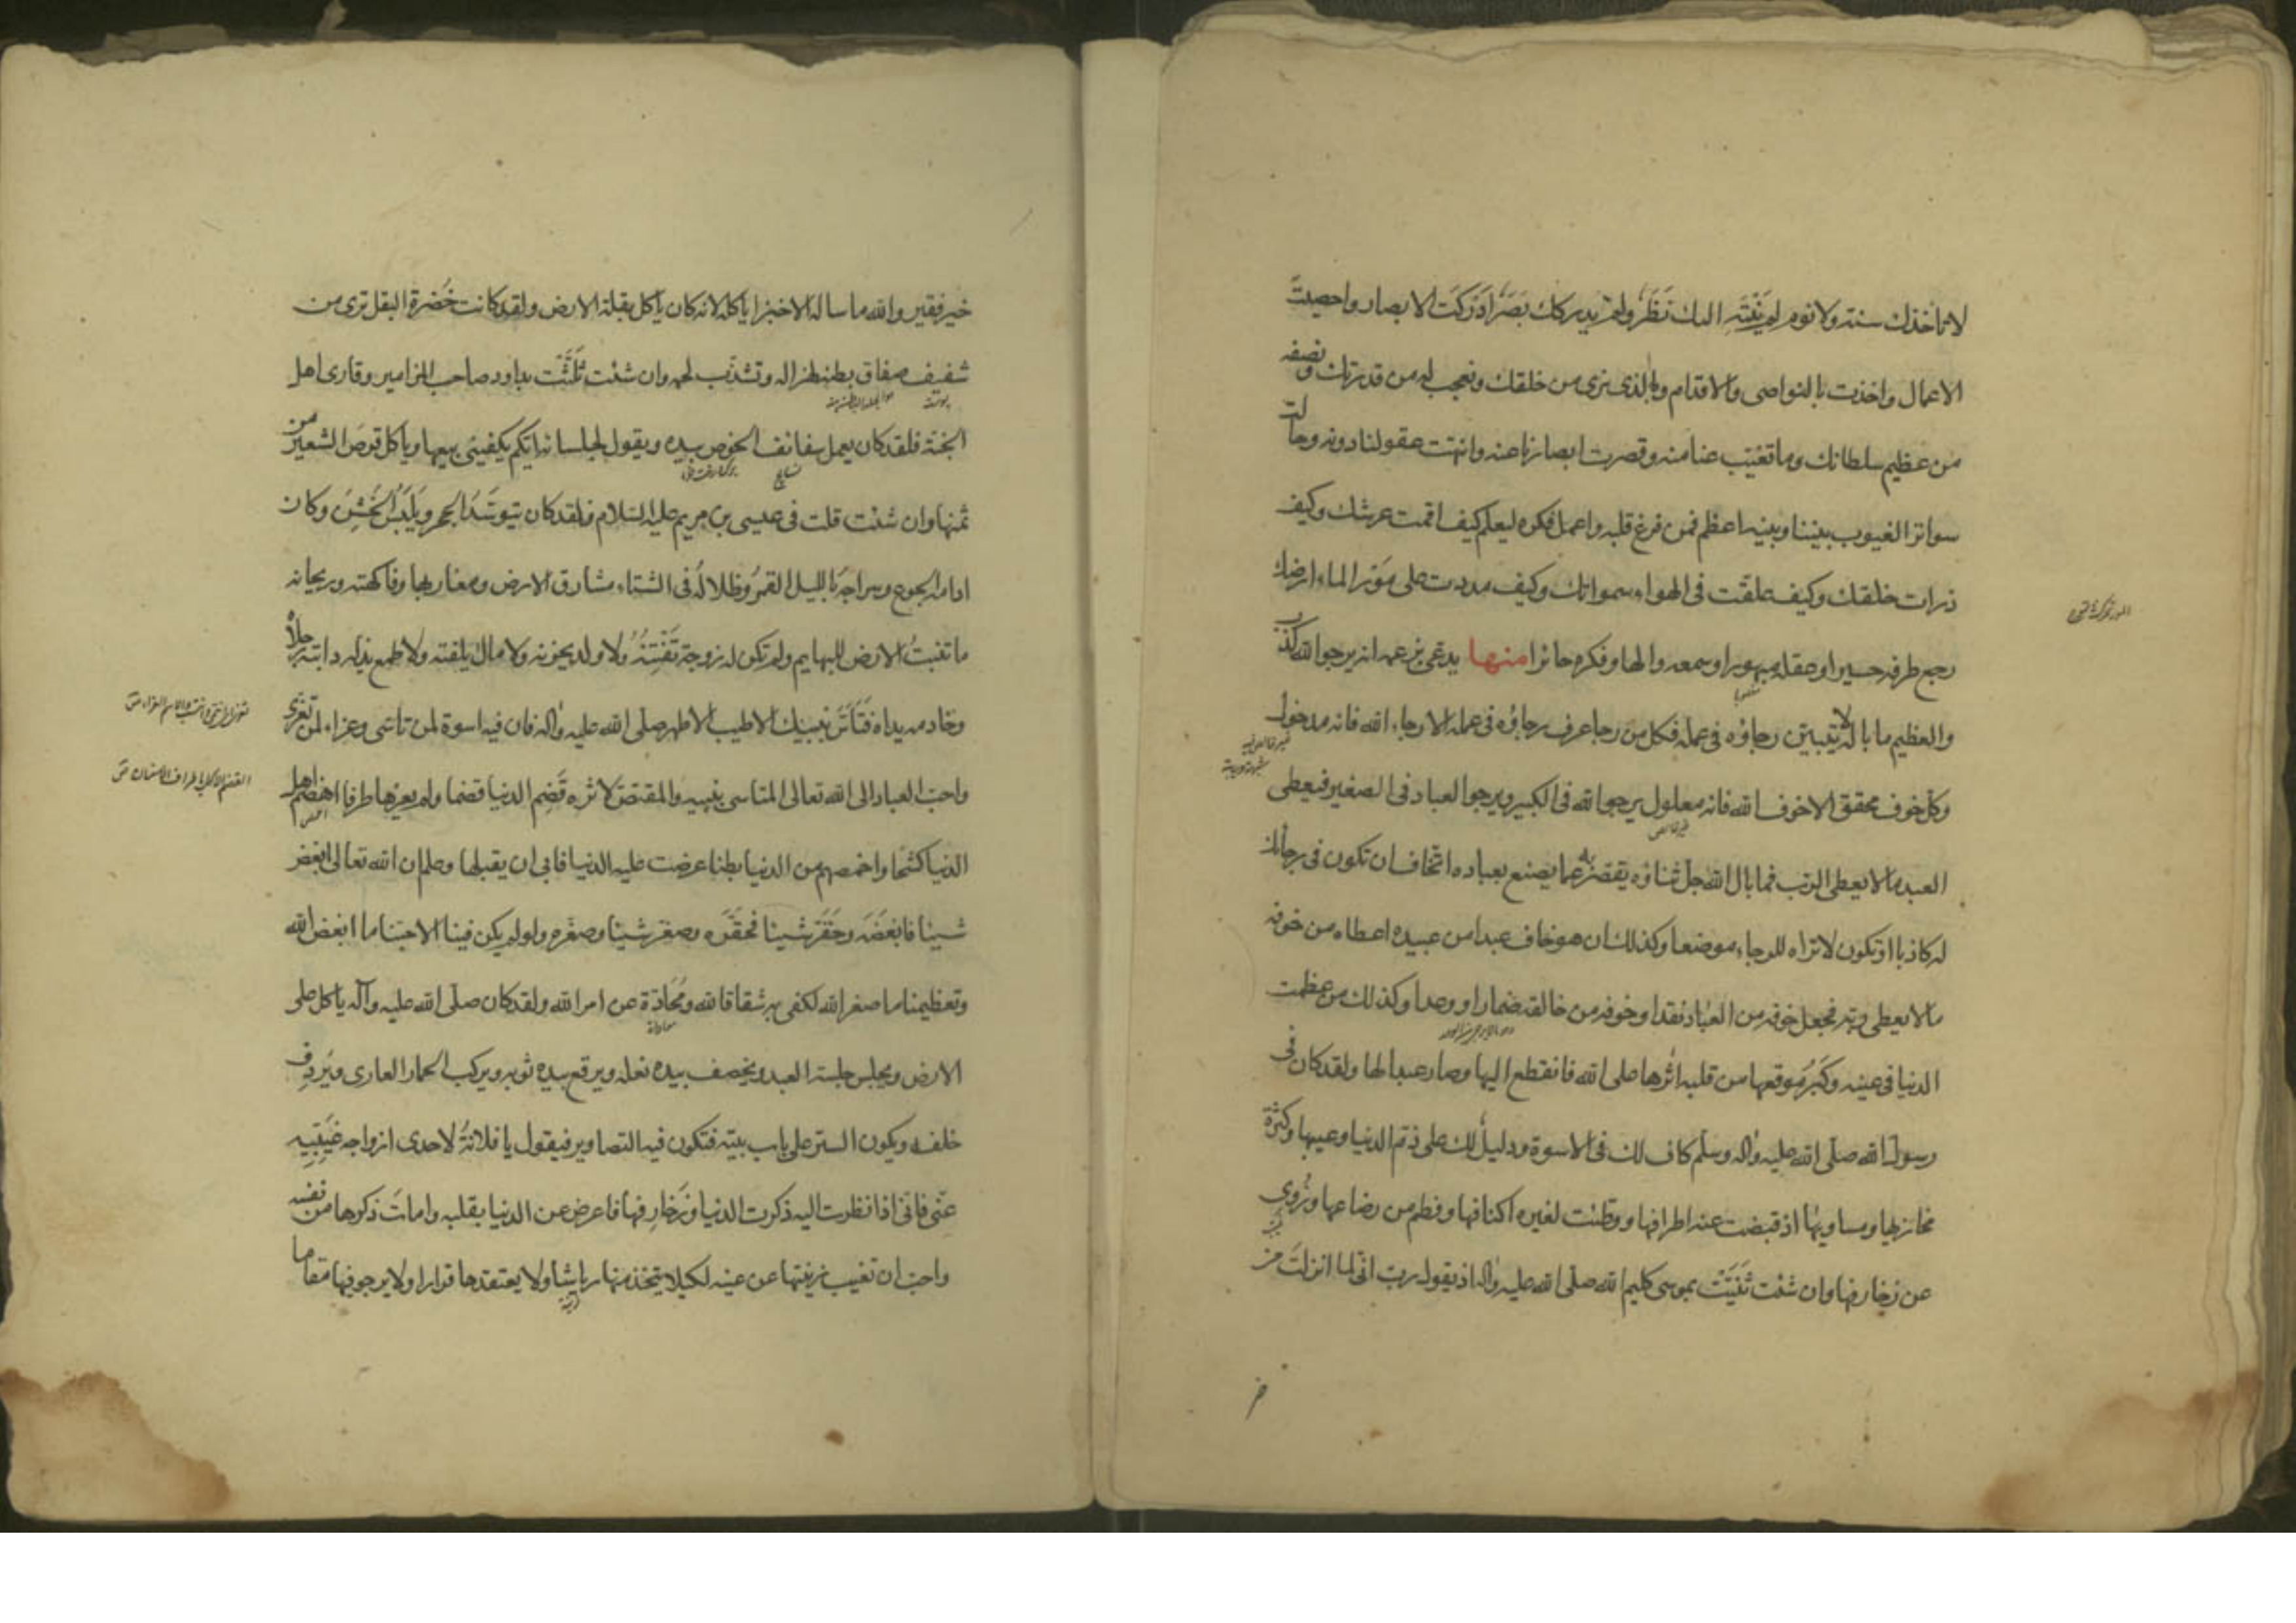 لا تاخذك سنة ولا نوم لم يَنْتَهِ اليك نَظَرٌ ولم يدركك بَصَرٌ ادركتَ الابصار واحصيتَ
الاعمال واخذت بالنواصى والاقدام وما الذى نرى من خلقك ونعجب له من قدرتك ونصفه
من عظيم سلطانك وما تغيّب عنا منه وقصرت ابصارنا عنه وانتهت عقولنا دونه وحالت
سواتر الغيوب بيننا وبينه اعظم فمن فرغ قلبه واعمل فكره ليعلم كيف اقمت عرشك وكيف
ذرات خلقك وكيف علقت فى الهواء سمواتك وكيف مددت على مَوْر الماء ارضك
رجع طرفه حسيرا وعقله مبهورا وسمعه والها وفكره حائرا منها يدعى بزعمه انه يرجو الله كذب
والعظيم ما باله لا يتبين رجاؤه فى عمله فكل من رجا عرف رجاؤه فى عمله الا رجاء الله فانه مدخول
وكل خوف محقق الا خوف الله فانه معلول يرجو الله فى الكبير ويرجو العباد فى الصغير فيعطى
العبد ما لا يعطى الرب فما بال الله جل ثناؤه يقصر به عما يصنع بعباده اتخاف ان تكون فى رجائك
له كاذبا او تكون لا تراه للرجاء موضعا وكذلك ان هو خاف عبدا من عبيده اعطاه من خوفه
ما لا يعطى ربه فجعل خوفه من العباد نقدا وخوفه من خالقه ضمارا ووعدا وكذلك من عظمت
الدنيا فى عينه وكَبُرَ موقعها من قلبه اثرها على الله فانقطع اليها وصار عبدا لها ولقد كان فى
رسول الله صلى الله عليه واله وسلم كاف لك فى الاسوة ودليل لك على ذم الدنيا وعيبها وكثرة
مخازيها ومساويها اذ قبضت عنه اطرافها ووطئت لغيره اكنافها وفطم من رضاعها وزُوى
عن زخارفها وان شئت ثَنَّيْتُ بموسى كليم الله صلى الله عليه واله اذ يقول رب انى لما انزلتَ من
خير فقير والله ما ساله الا خبزا ياكله لانه كان ياكل بقلة الارض ولقد كانت خُضرة البقل ترى من
شفيف صفاق بطنه لهزاله وتشذب لحمه وان شئت ثَلَّثْتُ بداود صاحب المزامير وقارى اهل
الجنة فلقد كان يعمل سفائف الخوص بيده ويقول لجلسائه ايكم يكفينى بيعها وياكل قرص الشعير من
ثمنها وان شئت قلت فى عيسى بن مريم عليه السلام فلقد كان يتوسّد الحجر ويلبس الخشن وكان
ادامه الجوع وسراجه بالليل القمر وظلاله فى الشتاء مشارق الارض ومغاربها وفاكهته وريحانه
ما تنبت الارض للبهايم ولم تكن له زوجة تَفْتِنُهُ ولا ولد يحزنه ولا مال يلفته ولا طمع يذله دابته رجلاه
وخادمه يداه فَتَأَسَّ بنبيك الاطيب الاطهر صلى الله عليه واله فان فيه اسوة لمن تاسى وعزاء لمن تعزى
واحب العباد الى الله تعالى المتاسى بنبيه والمقتص لاثره قَضَمَ الدنيا قضما ولم يعرها طرفا اهضم اهل
الدنيا كشحا واخمصهم من الدنيا بطنا عرضت عليه الدنيا فابى ان يقبلها وعلم ان الله تعالى ابغض
شيئا فابغضه وحقر شيئا فحقره وصغر شيئا وصغره ولو لم يكن فينا الا حبنا ما ابغض الله
وتعظيمنا ما صغر الله لكفى به شقاقا لله ومُحَادّة عن امر الله ولقد كان صلى الله عليه وآله ياكل على
الارض ويجلس جلسة العبد ويخصف بيده نعله ويرقع بيده ثوبه ويركب الحمار العارى ويَردِف
خلفه ويكون الستر على باب بيته فتكون فيه التصاوير فيقول يا فلانةُ لاحدى ازواجه غَيّبِيه
عنى فانى اذا نظرت اليه ذكرت الدنيا وزخارفها فاعرض عن الدنيا بقلبه وامات ذكرها من نفسه
واحب ان تغيب زينتها عن عينه لكيلا يتخذ منها رياشا ولا يعتقدها قرارا ولا يرجو فيها مقاما